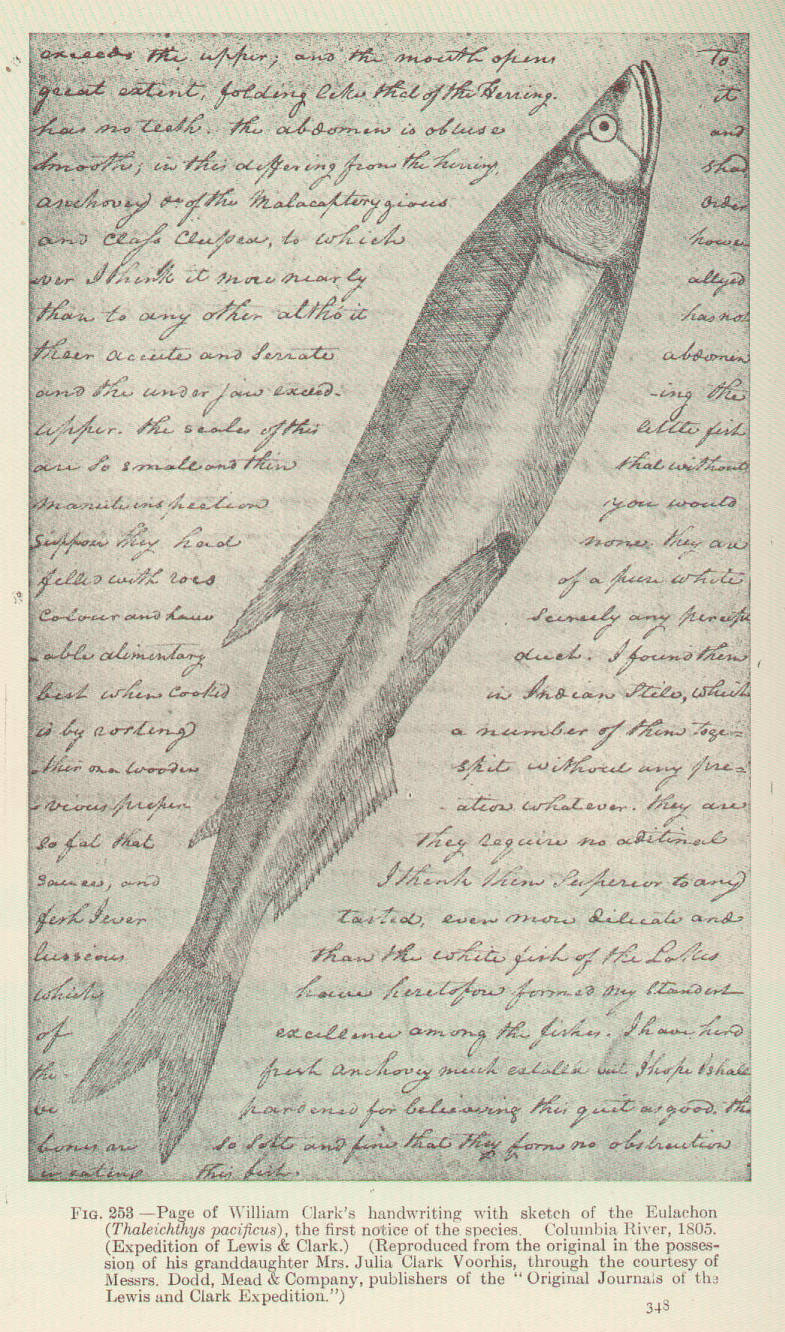 exceeds the upper; and the mouth opens to
great extent, folding like that of the Herring. it
has no teeth. the abdomen is obtuse and
Smooth; in this differing from the herring, Shad
anchovey &c of the Malacapterygious Order
and Class Clupea, to which howe
ver I think it more nearly allyed
than to any other altho' it has not
their accute and Serrate abdomen
and the under jaw exceed- -ing the
upper. the scales of this little fish
are So small and thin that without
manute inspection you would
Suppose they had none. they are
filled with roes of a pure white
Colour and have Scercely any percept
able alimentary duct. I found them
best when cooked in Indian Stile, which
is by rosting a number of them toge=
ther on a wooden spit without any pre=
vious prepar ation whatever. they are
So fat that they require no aditinal
sauces, and I think them Superior to any
fish I ever tasted, even more dilicate and
lussious than the white fish of the Lakes
which have heretofore formed my Standart
of excellence among the fishes. I have herd
the fresh anchovey much extolled but I hope I shall
be pardened for believing this quit as good. the
bones are So Soft and fine that they form no obstruction
in eating this fish.
FIG. 253 —Page of William Clark's handwriting with sketch of the Eulachon
(Thaleichthys pacificus), the first notice of the species. Columbia River, 1805.
(Expedition of Lewis & Clark.) (Reproduced from the original in the posses-
sion of his granddaughter Mrs. Julia Clark Voorhis, through the courtesy of
Messrs. Dodd, Mead & Company, publishers of the "Original Journals of the
Lewis and Clark Expedition.")
348